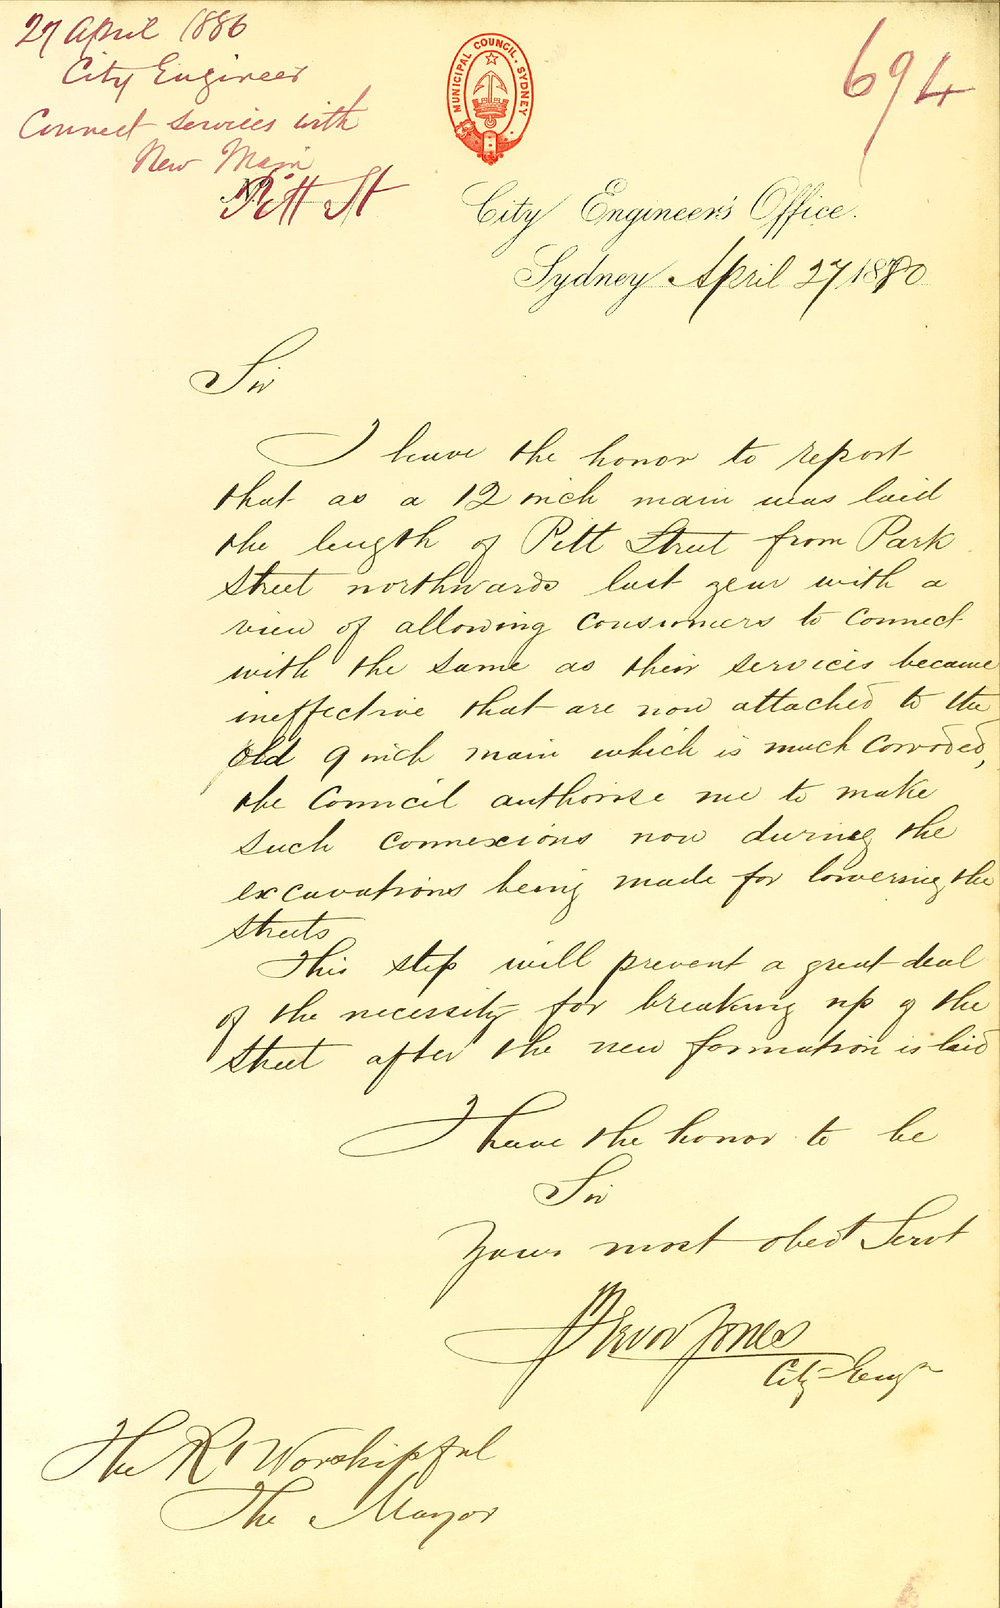 27 April 1886
City Engineer
Connect services with
New Main
Pitt St
694
MUNICIPAL COUNCIL. SYDNEY
City Engineer's Office.
Sydney April 27 1880
Sir
I have the honor to report
that as a 12 inch main was laid
the length of Pitt Street from Park
Street northwards last year with a
view of allowing consumers to connect
with the same as their services became
ineffective that are now attached to the
old 9 inch main which is much corroded,
the Council authorise me to make
such connexions now during the
excavations being made for lowering the
streets
This step will prevent a great deal
of the necessity for breaking up of the
Street after the new formation is laid
I have the honor to be
Sir
Yours most obedt Servt
Trevor Jones
City Engr
The Rt Worshipful
The Mayor